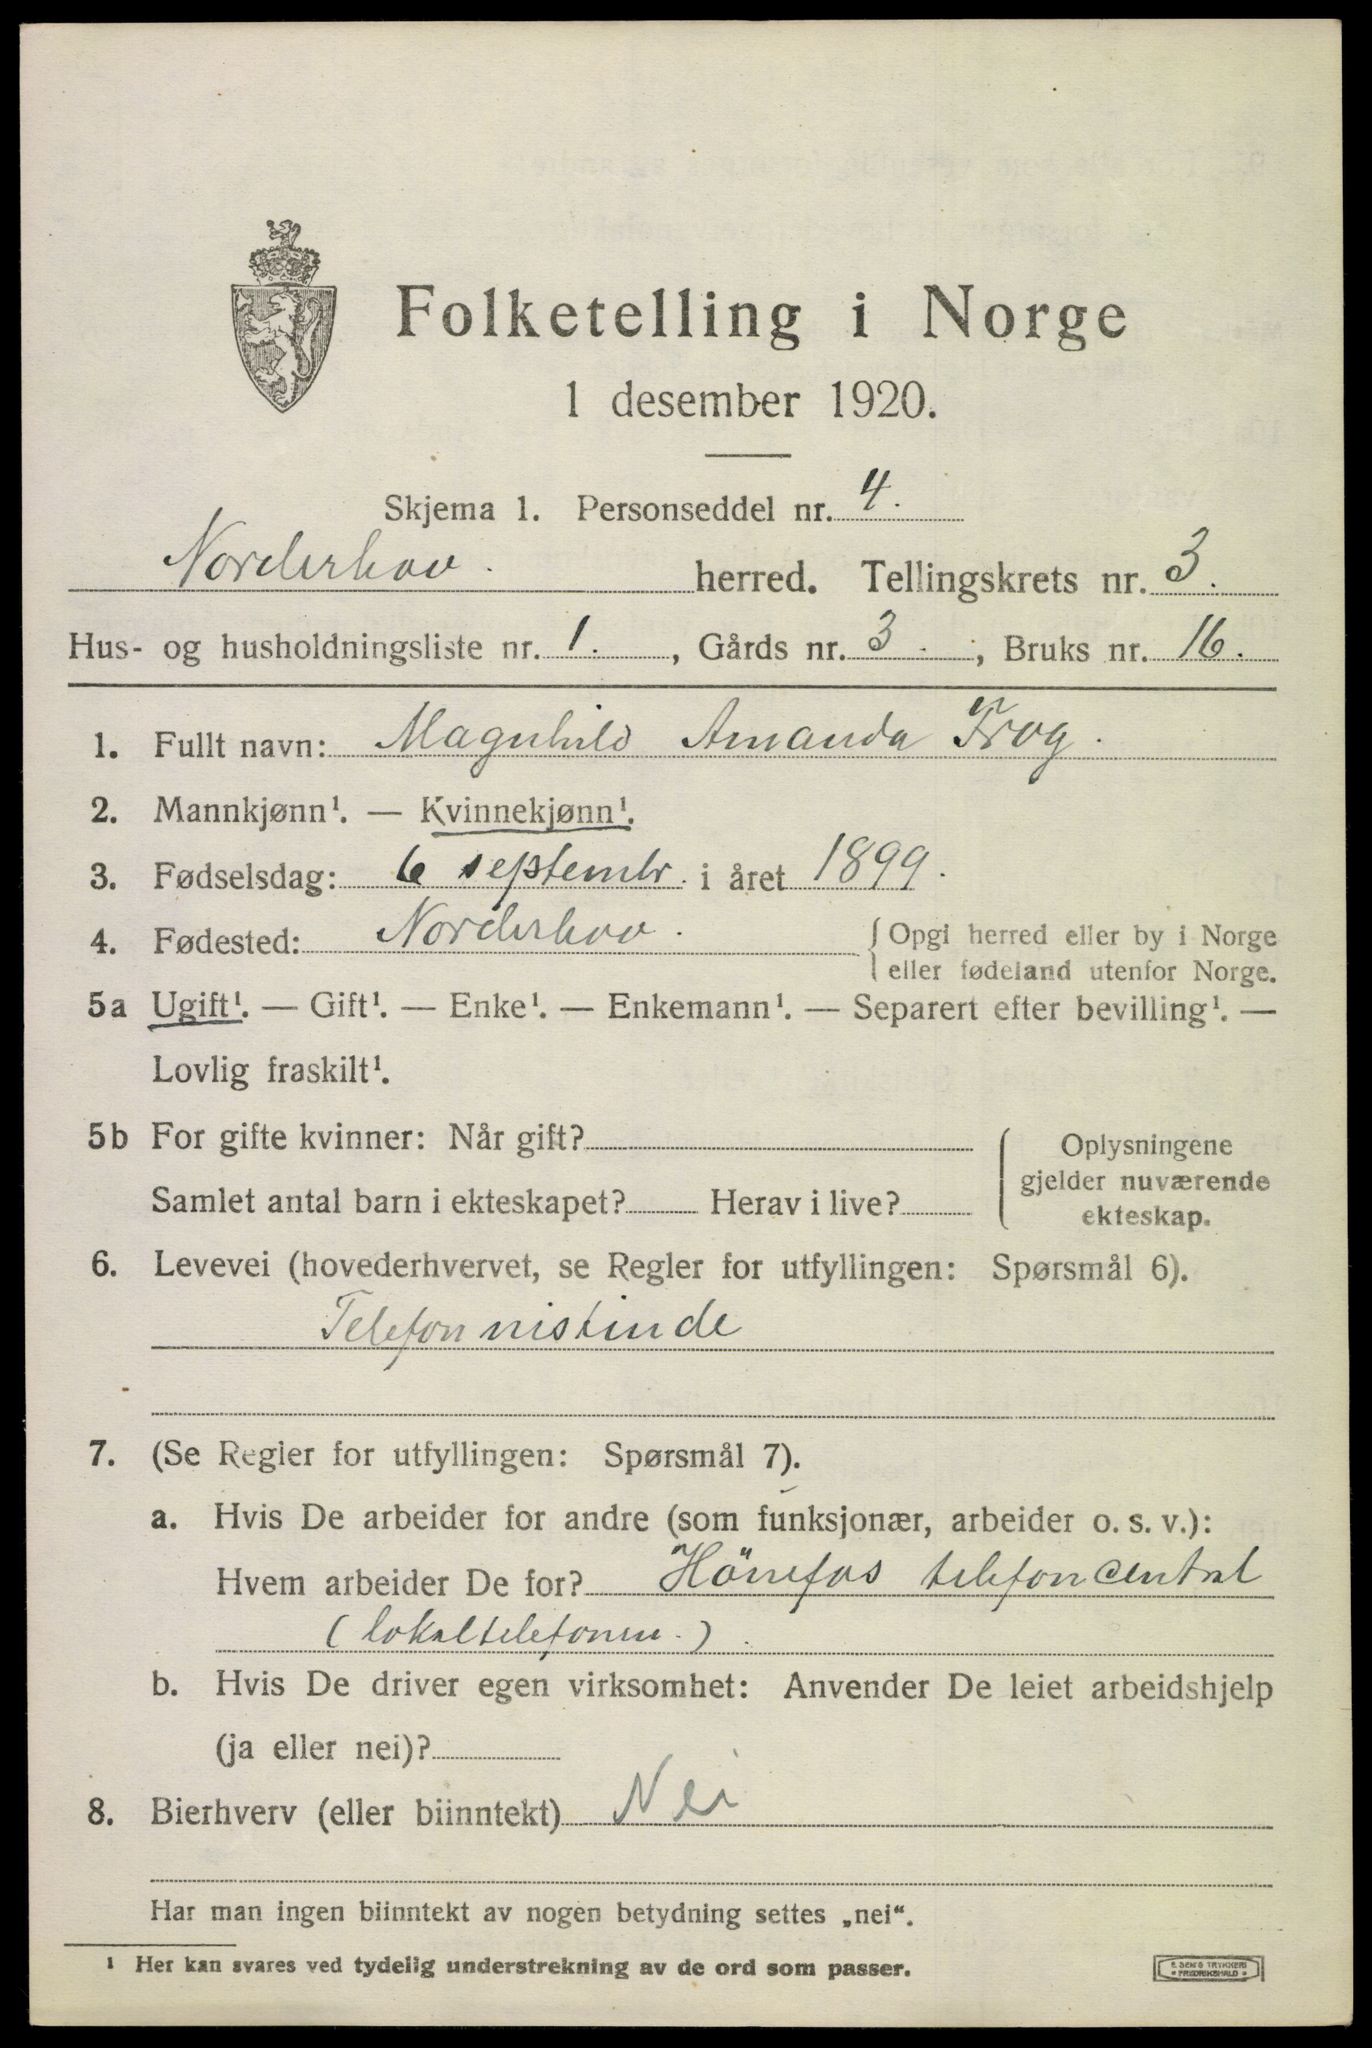 Folketelling i Norge
1 desember 1920.
Skjema 1. Personseddel nr. 4.
Norderhov. herred. Tellingskrets nr. 3.
Hus- og husholdningsliste nr. 1. , Gårds nr. 3. , Bruks nr. 16.
1. Fullt navn: Magnhild Amanda Frog.
2. Mannkjønn¹. — Kvinnekjønn¹.
3. Fødselsdag: 6 septembr. i året 1899.
4. Fødested: Norderhov. { Opgi herred eller by i Norge
eller fødeland utenfor Norge.
5a Ugift¹. — Gift¹. — Enke¹. — Enkemann¹. — Separert efter bevilling¹. —
Lovlig fraskilt¹.
5b For gifte kvinner: Når gift? { Oplysningene
gjelder nuværende
Samlet antal barn i ekteskapet? Herav i live? ekteskap.
6. Levevei (hovederhvervet, se Regler for utfyllingen: Spørsmål 6).
Telefonnistinde
7. (Se Regler for utfyllingen: Spørsmål 7).
a. Hvis De arbeider for andre (som funksjonær, arbeider o. s. v.):
Hvem arbeider De for? Hönefos telefoncentral
(lokaltelefonen.).
b. Hvis De driver egen virksomhet: Anvender De leiet arbeidshjelp
(ja eller nei)?
8. Bierhverv (eller biinntekt) Nei
Har man ingen biinntekt av nogen betydning settes „nei“.
¹ Her kan svares ved tydelig understrekning av de ord som passer.
E. SEM'S TRYKKERI
FREDRIKSHALD